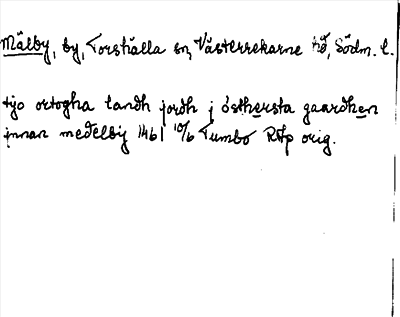 Mälby, by, Torshälla sn, Västerrekarne hd, Södm. l.
tijo ortogha landh jordh j østhersta gaardhen
jnnan međelby 1461 10/6 Tumbo RAp orig.